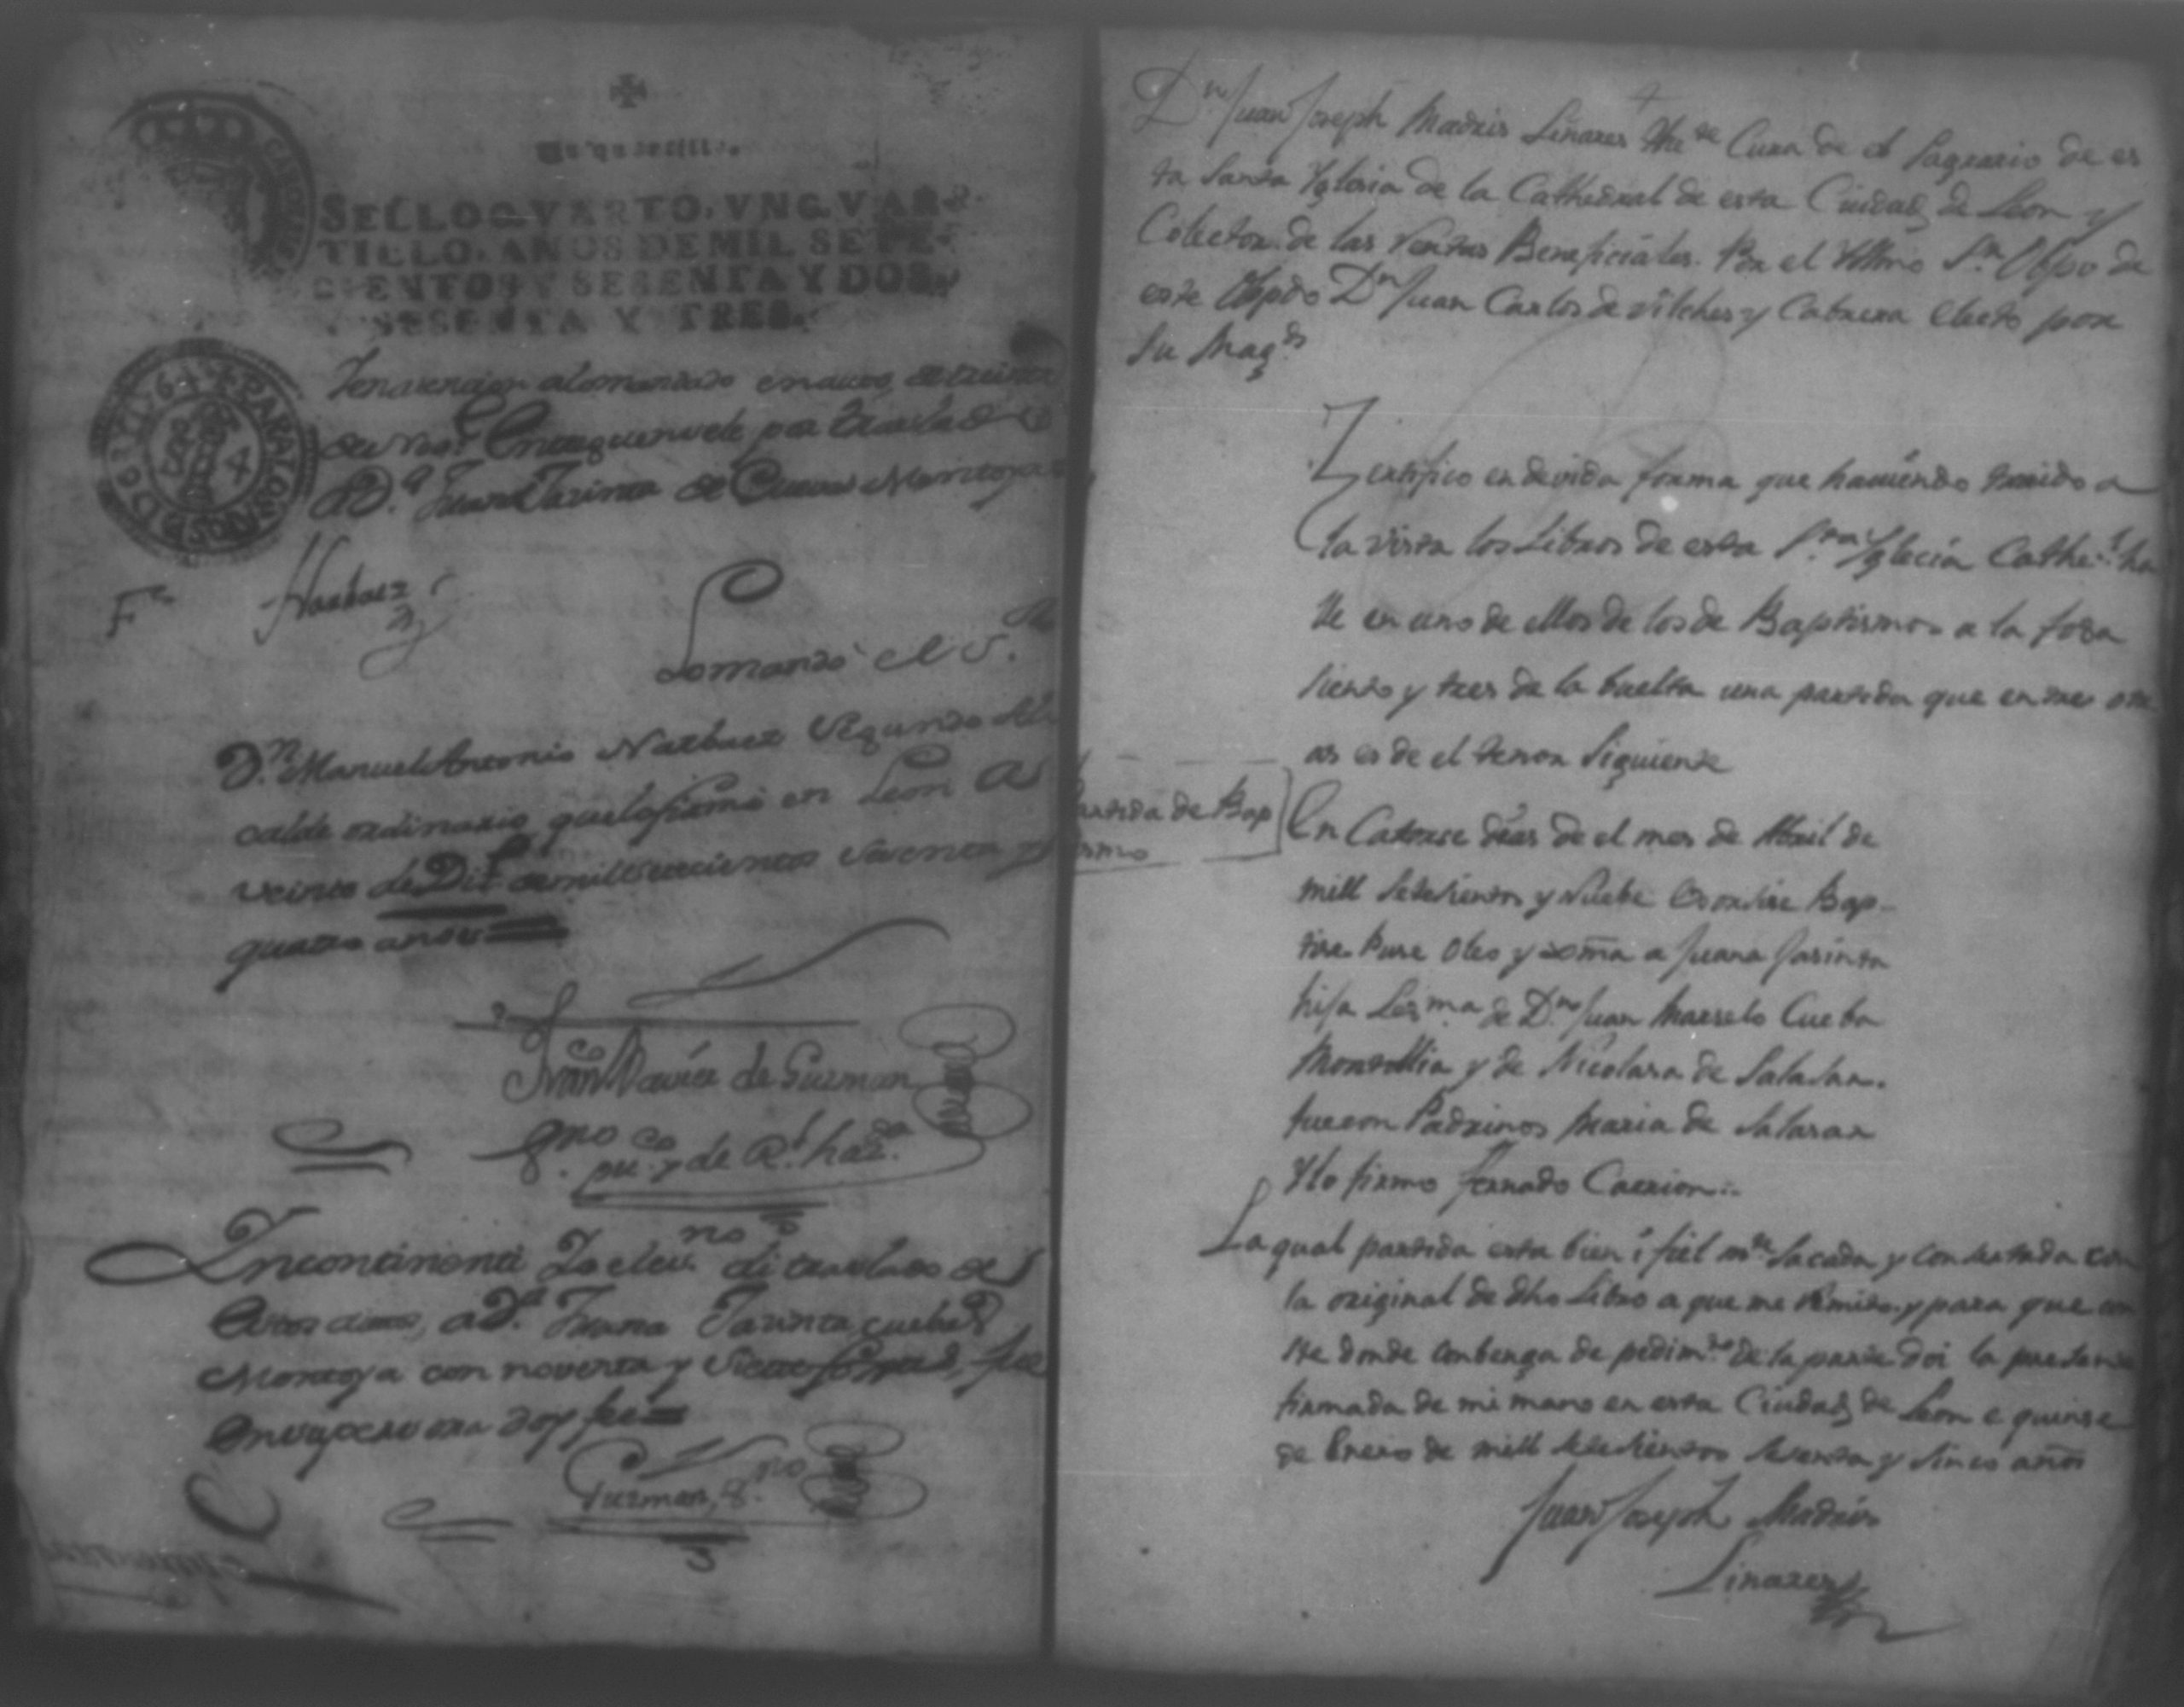 Un quartillo.
SELLO QVARTO, VN QVAR
TILLO, AÑOS DE MIL SETE
CIENTOS Y SESENTA Y DOS, Y
SESENTA Y TRES.
CAROLVS
PARA LOS AÑOS D 1764
Tenarencion alomandado enautos
Entreguensele por traslado
a D.ª Juana Jazinta de Cueva Montoya
F.
Narbaez
Lo mandó el S.
D.n Manuel Antonio Narbaez Segundo Al
calde ordinario que lo firmó en Leon A
veinte de Diz.e de mil setecientos sesenta y
quatro años
Juan Xavier de Guzman
S.no pu.co y de R.l haz.da
Incontinenti Yo el es.no di traslado de
Estos autos, a D.ª Juana Jazinta Cueba
Montoya con noventa y siete fojas,
doy fee
Guzman, S.no
D.n Juan Joseph Madris Liñares The.te Cura de el Sagrario de es
ta Santa Yglesia de la Cathedral de esta Ciudad de Leon y
Colector de las Rentas Beneficiales. Por el Yllmo S.r Obpo de
este Obpdo D.n Juan Carlos de Vilches y Cabrera electo por
Su Mag.d
Zertifico en devida forma que haviendo traido a
la vista los Libros de esta S.ta Yglecia Cathe.l ha
lle en uno de ellos de los de Baptismos a la foxa
siento y tres de la buelta una partida que entre otr
as es de el tenor Siguiente
Partida de Bap
tismo
En Catorse dias de el mes de Abril de
mill Setesientos y Nuebe Exorsise Bap-
tise Puse Oleo y Xrma a Juana Jasinta
hija Leg.ma de D.n Juan Marselo Cueba
Montollia y de Nicolasa de Salasar.
fueron Padrinos Maria de Salasar
Y lo firmo Fernado Carrion
La qual partida esta bien i fiel m.te Sacada y consertada con
la original de dho Libro a que me remito. y para que con
ste donde conbenga de pedim.to de la parte doi la presente
firmada de mi mano en esta Ciudad de Leon e quinse
de Enero de mill Setesientos Sesenta y Sinco años
Juan Joseph Madris
Linares